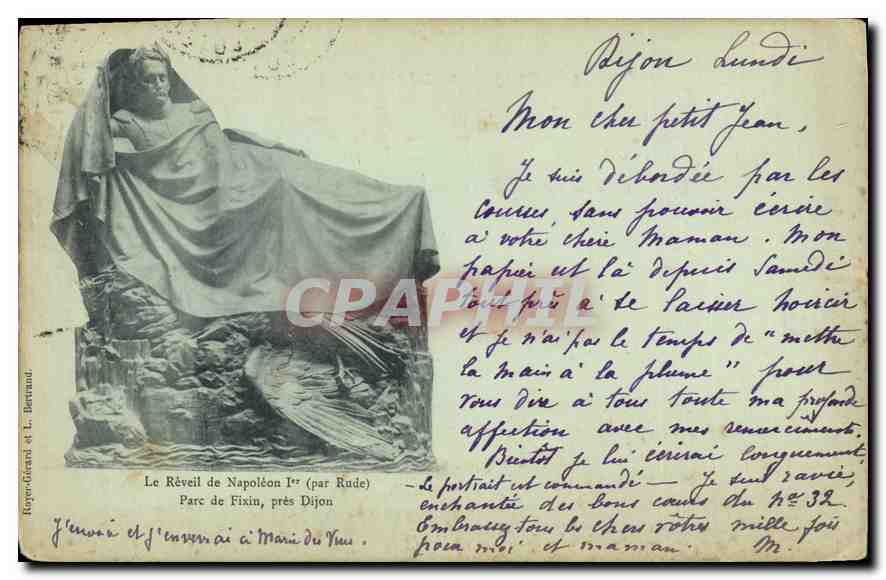 Dijon Lundi
Mon cher petit Jean,
Je suis débordée par les
courses, sans pouvoir écrire
à votre chère Maman. Mon
papier est là depuis Samedi
tout prêt à se laisser noircir
et je n'ai pas le temps de "mettre
la main à la plume" pour
vous dire à tous toute ma profonde
affection avec mes remerciements.
Bientôt je lui écrirai longuement,
- Le portrait est commandé - Je suis ravie,
enchantée des bons cours du no 32
Embrassez tous les chers vôtres mille fois
pour moi et maman. M.
CPAPHIL
Royer-Gérard et L. Bertrand.
Le Réveil de Napoléon Ier (par Rude)
Parc de Fixin, près Dijon
J'envoie et j'enverrai à Marie des Vues.